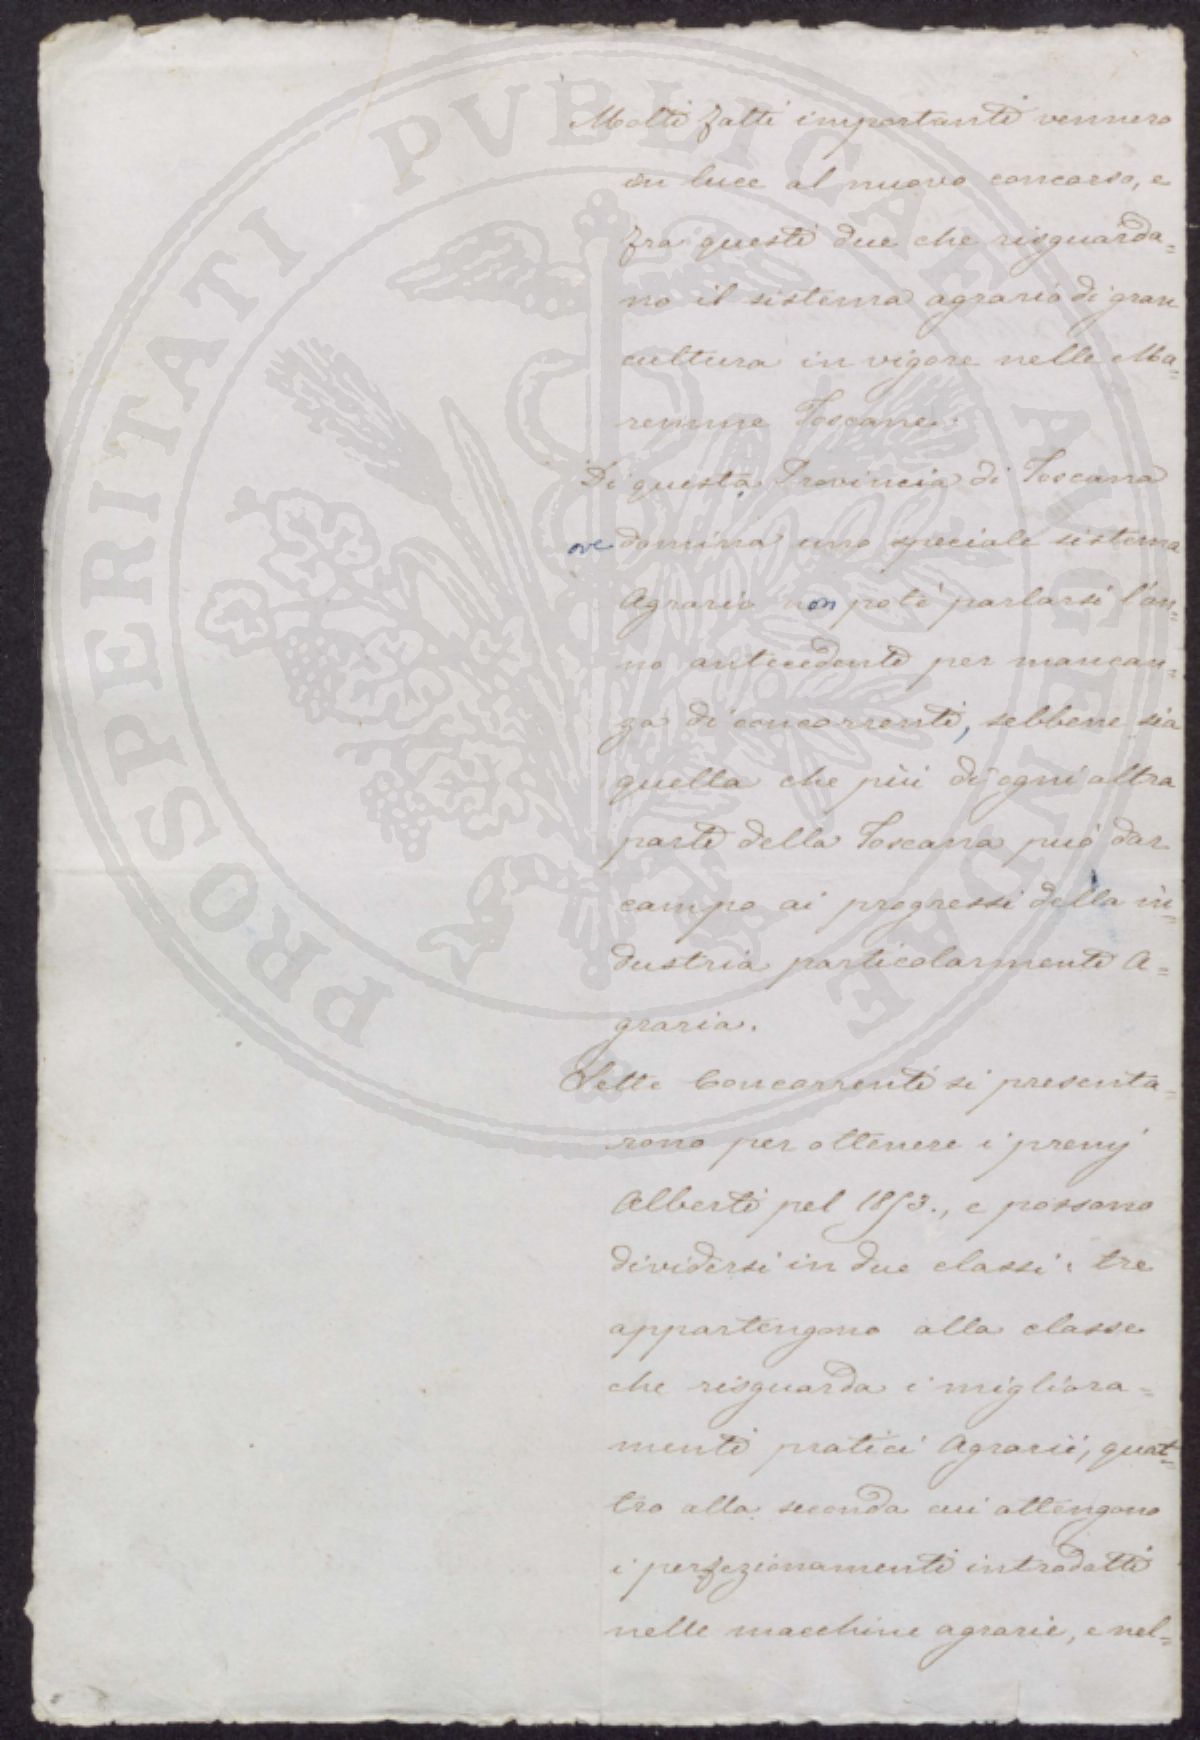 Molti fatti importanti vennero
in luce al nuovo concorso, e
fra questi due che risguarda=
no il sistema agrario di gran
cultura in vigore nelle Ma=
remme Toscane.
Di questa Provincia di Toscana
ove domina uno speciale sistema
Agrario non potè parlarsi l'an=
no antecedente per mancan=
za di concorrenti, sebbene sia
quella che più di ogni altra
parte della Toscana può dar
campo ai progressi della in=
dustria particolarmente A=
graria.
Sette Concorrenti si presenta=
rono per ottenere i premj
Alberti pel 1853., e possono
dividersi in due classi: tre
appartengono alla classe
che risguarda i migliora=
menti pratici Agrarii, quat=
tro alla seconda cui attengono
i perfezionamenti introdotti
nelle macchine agrarie, e nel=
PROSPERITATI PVBLICAE AVGENDAE